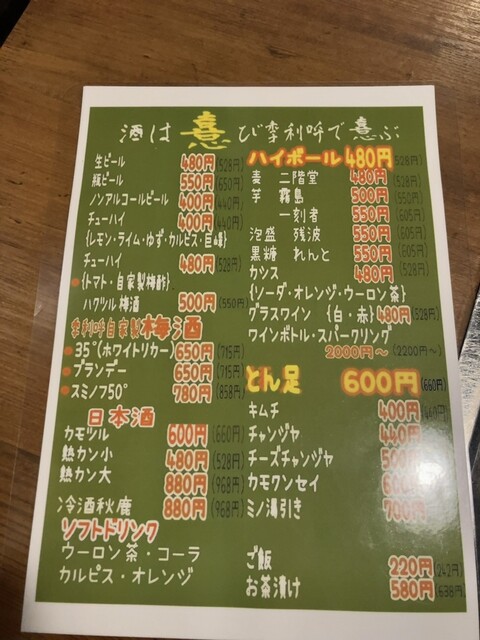 酒は憙び李利吽で憙ぶ
生ビール 480円(528円)
瓶ビール 550円(650円)
ノンアルコールビール 400円(440円)
チューハイ 400円(440円)
{レモン・ライム・ゆず・カルピス・巨峰}
チューハイ 480円(528円)
{トマト・自家製梅酢}
ハクツル梅酒 500円(550円)
李利吽自家製梅酒
35°(ホワイトリカー) 650円(715円)
ブランデー 650円(715円)
スミノフ50° 780円(858円)
日本酒
カモツル 600円(660円)
熱カン小 480円(528円)
熱カン大 880円(968円)
冷酒秋鹿 880円(968円)
ソフトドリンク
ウーロン茶・コーラ
カルピス・オレンジ
ハイボール 480円(528円)
麦 二階堂 480円(528円)
芋 霧島 500円(550円)
一刻者 550円(605円)
泡盛 残波 550円(605円)
黒糖 れんと 550円(605円)
カシス 480円(528円)
{ソーダ・オレンジ・ウーロン茶}
グラスワイン {白・赤} 480円(528円)
ワインボトル・スパークリング
2000円〜(2200円〜)
とん足 600円(660円)
キムチ 400円(440円)
チャンジャ 440円
チーズチャンジャ
カモワンセイ
ミノ湯引き 700円
ご飯 220円(242円)
お茶漬け 580円(638円)